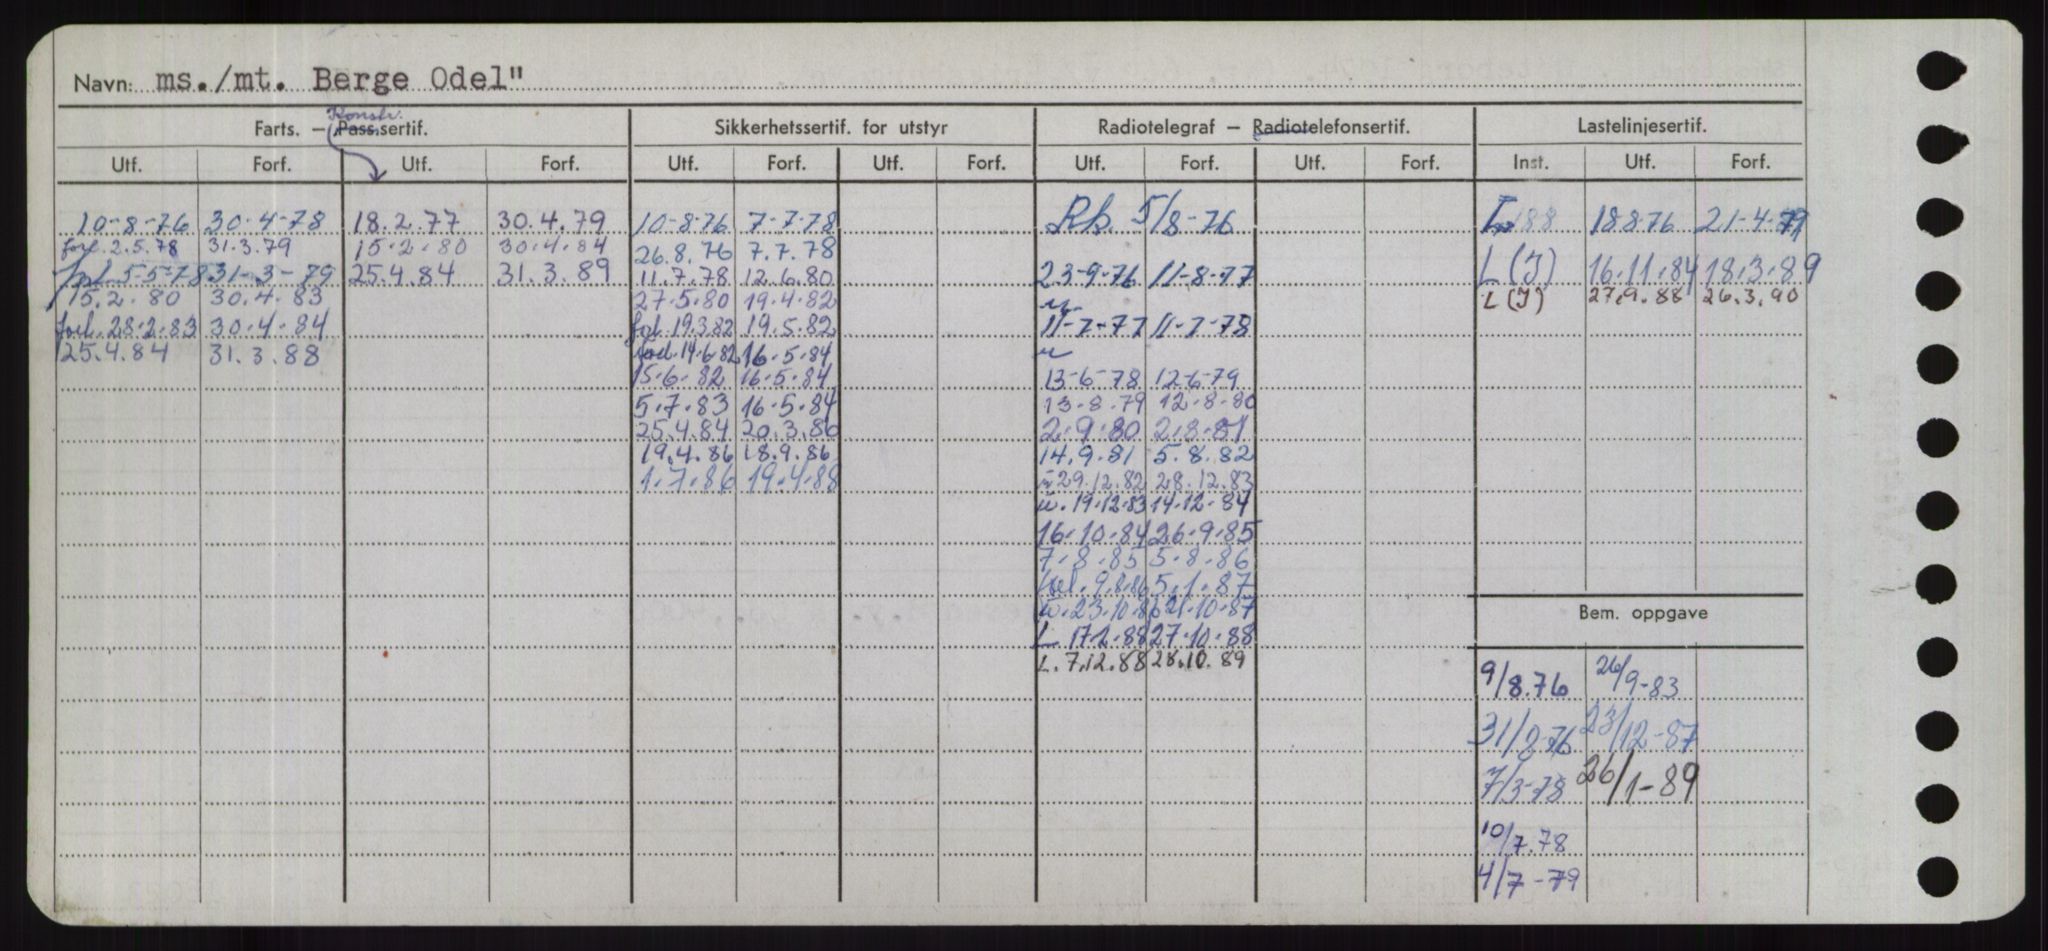 Navn: ms./mt. Berge Odel"
Konstr.
Farts. – Pass.sertif. Sikkerhetssertif. for utstyr Radiotelegraf – Radiotelefonsertif. Lastelinjesertif.
Utf. Forf. Utf. Forf. Utf. Forf. Utf. Forf. Utf. Forf. Utf. Forf. Inst. Utf. Forf.
10-8-76 30-4-78 18.2.77 30.4.79 10-8-76 7-7-78 Rb. 5/8-76 188 18876 21-4-79
forl. 2.5.78 31.3.79 15.2.80 30.4.84 26.8.76 7.7.78
5-5-78 31-3-79 25.4.84 31.3.89 11.7.78 12.6.80 23-9-76 11-8-77 L(I) 16.11.84 18.3.89
15.2.80 30.4.83 27.5.80 19.4.82 L(I) 27.9.88 26.3.90
forl. 28.2.83 30.4.84 fol. 19.3.82 19.5.82 11-7-77 11-7-78
25.4.84 31.3.88 forl. 14.6.82 16.5.84
15.6.82 16.5.84 13-6-78 12-6-79
5.7.83 16.5.84 13-8-79 12-8-80
25.4.84 20.3.86 2.9.80 2.8.81
19.4.86 18.9.86 14.9.81 5.8.82
1.7.86 19.4.88 29.12.82 28.12.83
u. 19.12.83 14.12.84
16.10.84 26.9.85
7.8.85 5.8.86
forl. 9.8.86 5.1.87
u. 23.10.86 21.10.87
Bem. oppgave
L. 17.2.88 27.10.88
L. 7.12.88 28.10.89
9/8.76 26/9-83
31/8-76 23/12-87
7/3-78 26/1-89
10/7.78
4/7-79